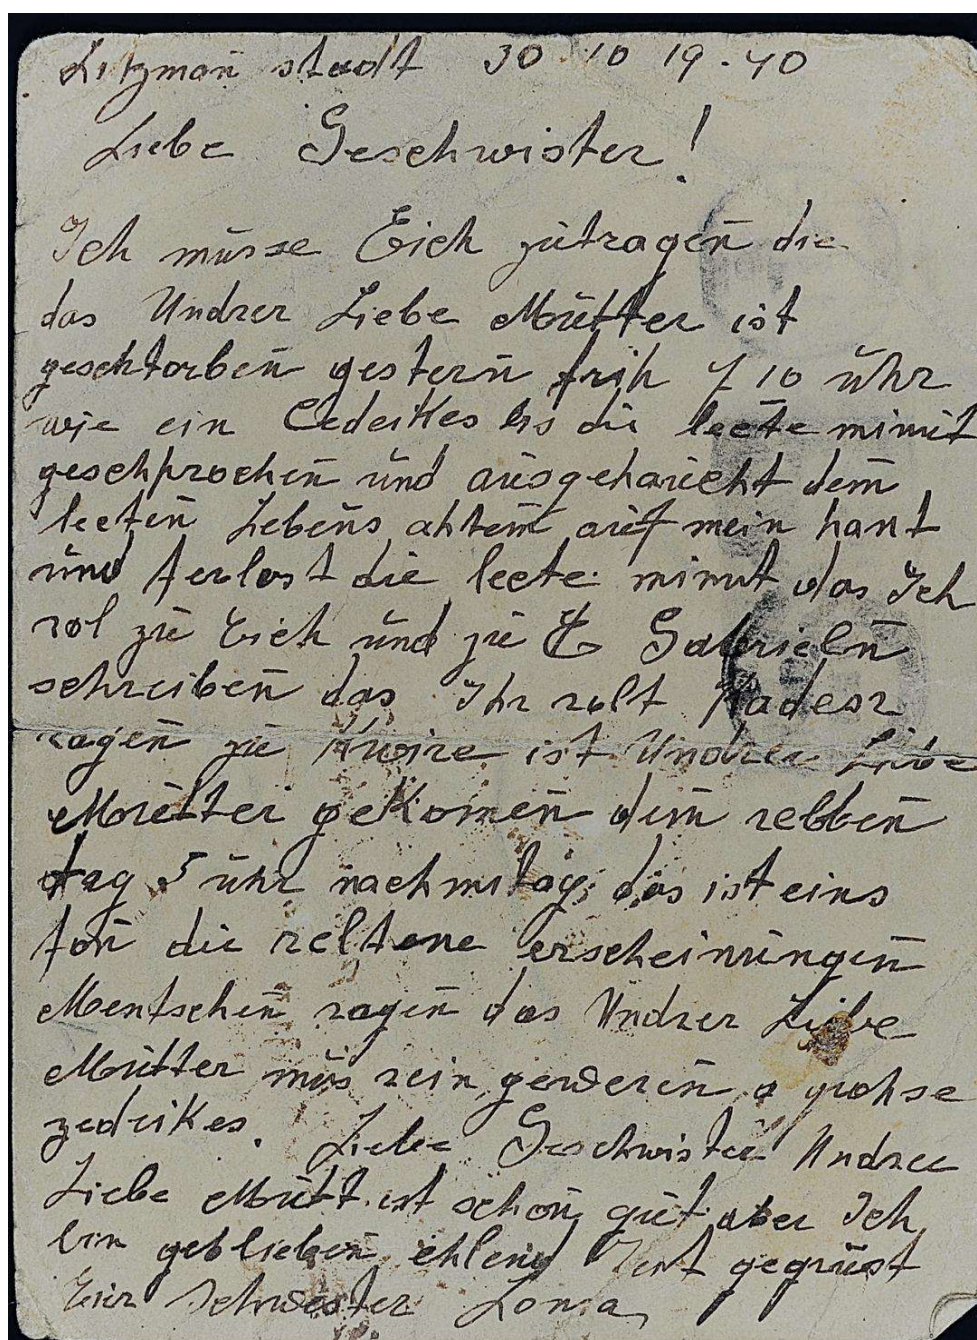 Litzman̄ stadt 30 10 19.40
Liebe Geschwister!
Ich musse Eich zutragen̄ die
das Undzer Liebe Mutter ist
geschtorben̄ gestern̄ frih 7 10 uhr
wie ein Cedeikes bis die lecte minut
geschprochen̄ und ausgehaucht dem̄
lecten̄ Lebens ahtem̄ auf mein hant
und ferlost die lecte minut das Ich
zol zu Eich und zu Gabrieln̄
schreiben̄ das Ihr zolt Kadesz
zagen̄ zu ist Undzer Libe
Mutter gekomen̄ dem̄ zebben̄
tag 5 uhr nachmitag, das ist eins
fon̄ die zeltene erscheinungen̄
Mentschen̄ zagen̄ das Undzer Libe
Mutter mus zein gewezen̄ a grohse
zedeikes. Liebe Geschwister Undzer
Liebe Mutt ist schon̄ gut aber Ich
bin geblieben̄ ehlend gegrust
Eier Schwester Lonia